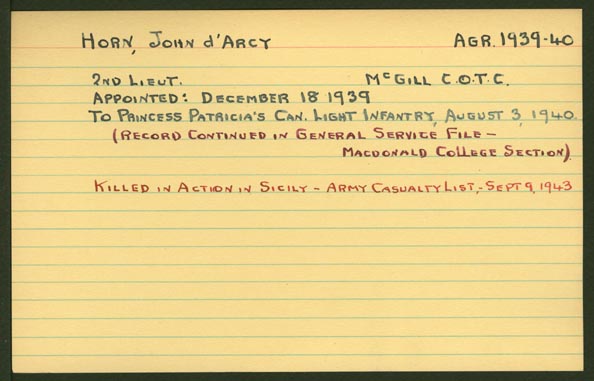 Horn, John d'Arcy Agr. 1939-40
2nd Lieut. McGill C.O.T.C.
Appointed: December 18 1939
To Princess Patricia's Can. Light Infantry, August 3, 1940.
(Record Continued in General Service File –
Macdonald College Section)
Killed in Action in Sicily – Army Casualty List, – Sept 9, 1943